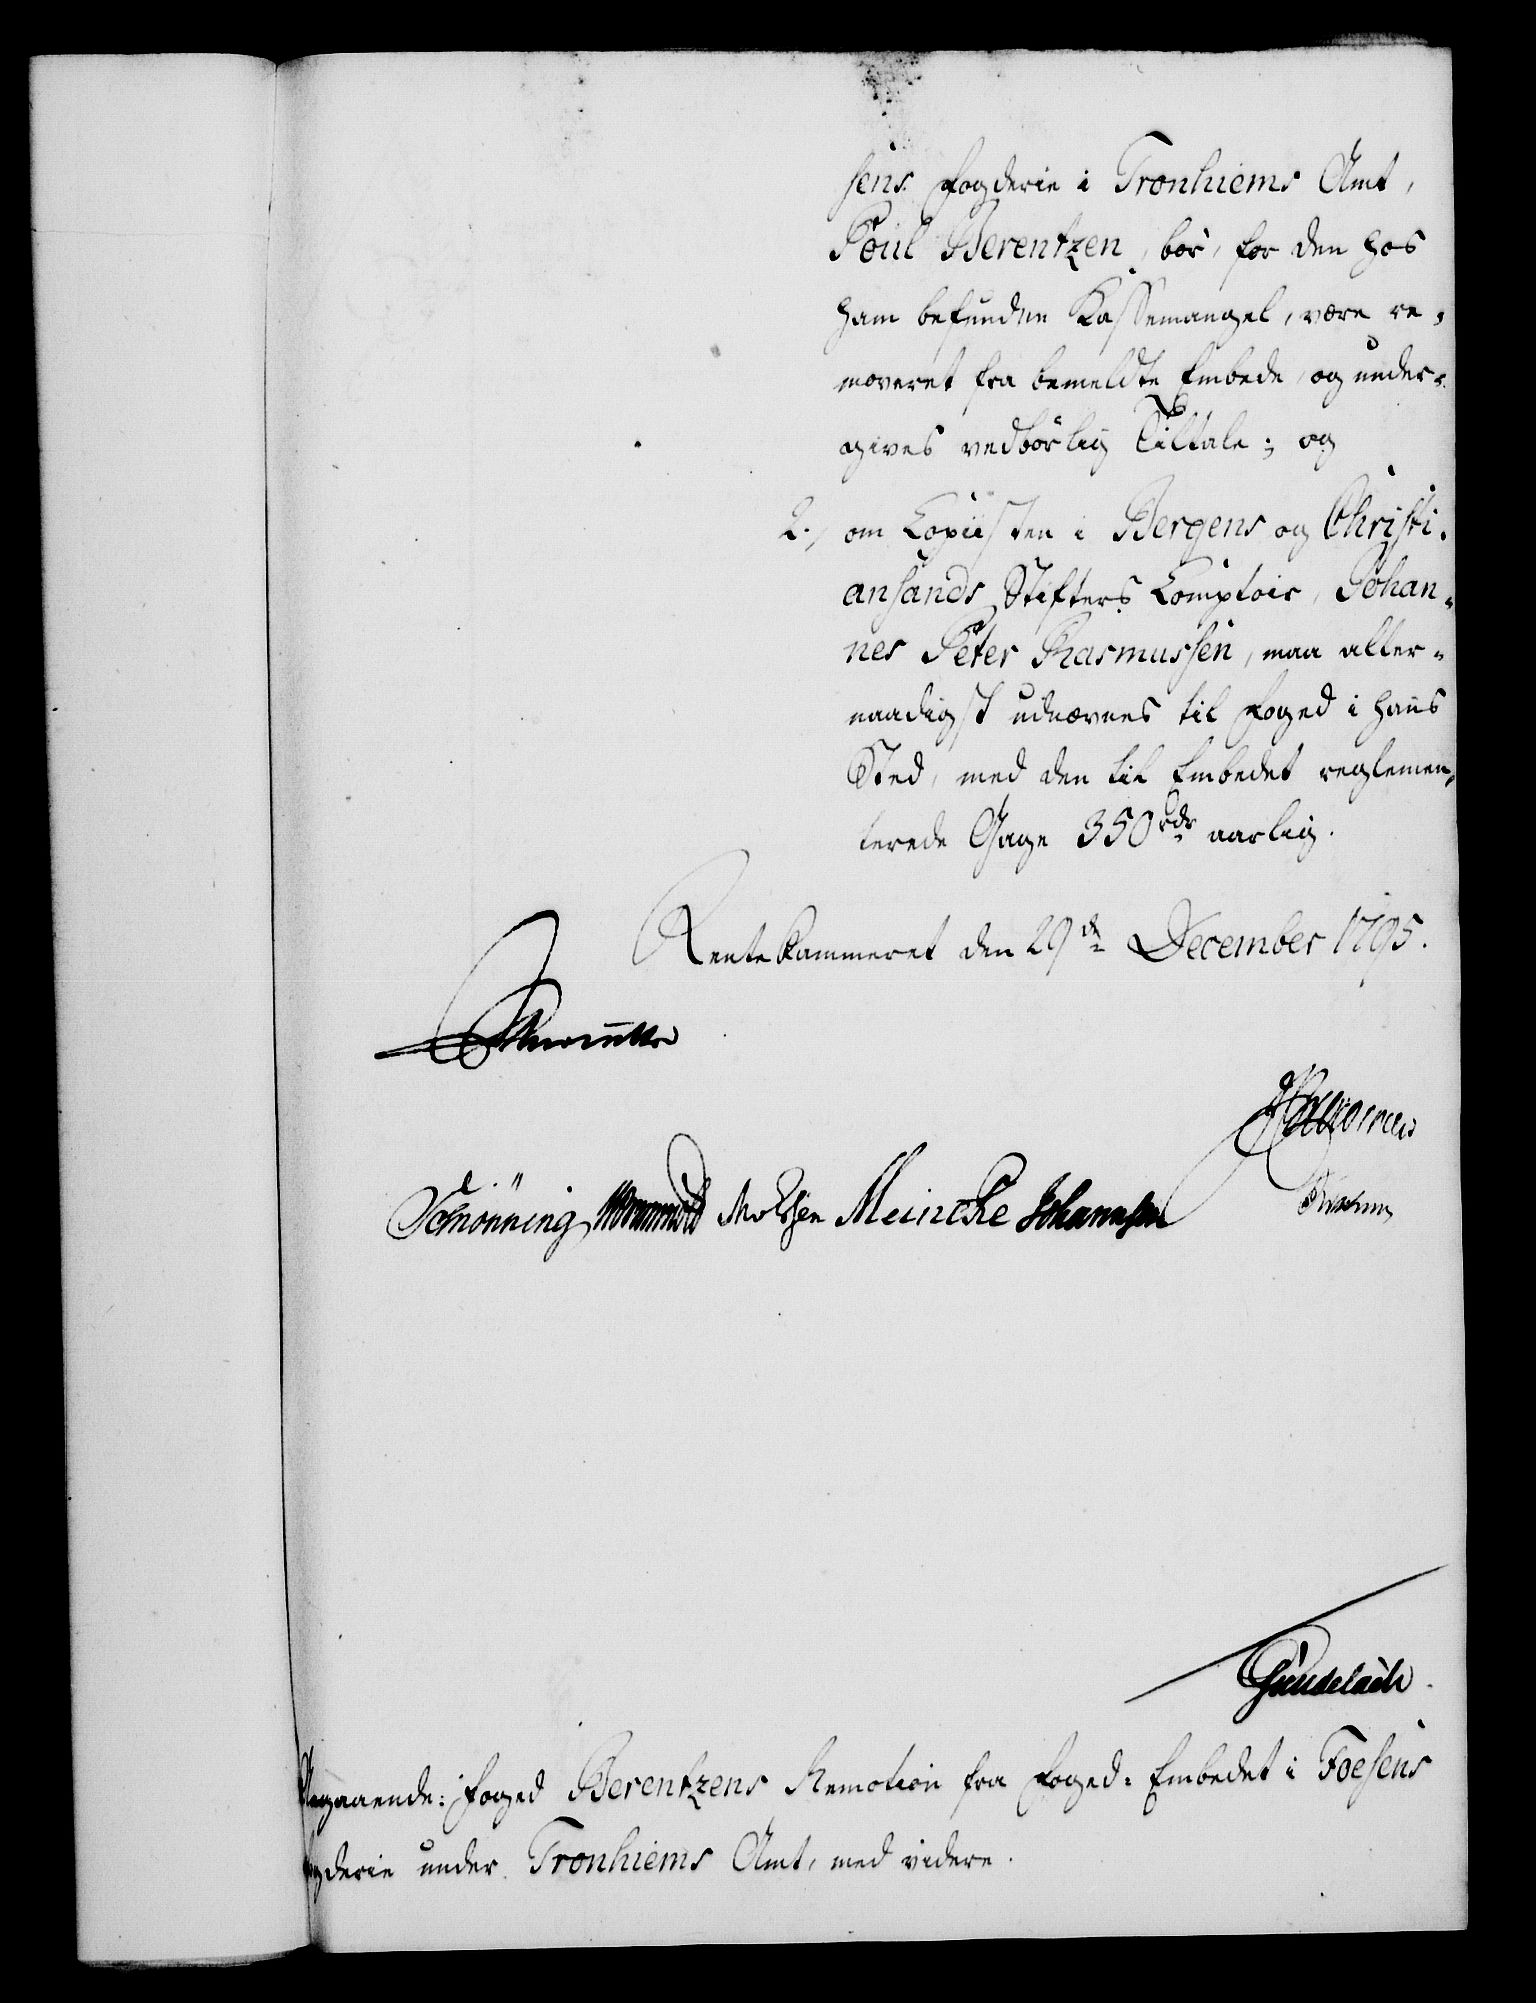 sens Fogderie i Tronhiems Amt,
Poul Berentzen, bör, for den hos
ham befundne Kassemangel, være re-
moveret fra bemeldte Embede, og under-
gives vedbörlig Tiltale; og
2., om Copiisten i Bergens og Christi-
ansands Stifters Comptoir, Johan-
nes Peter Rasmussen, maa aller-
naadigst udnævnes til Foged i hans
Sted, med den til Embedet reglemen-
terede Gage 350 rdr aarlig.
Rentekammeret den 29de December 1795.
Schönning Wormskiold Moltzen Meincke Johannsen
Gundelach.
Angaaende: Foged Berentzens Remotion fra Foged-Embedet i Foesens
Fogderie under Tronhiems Amt, med videre.